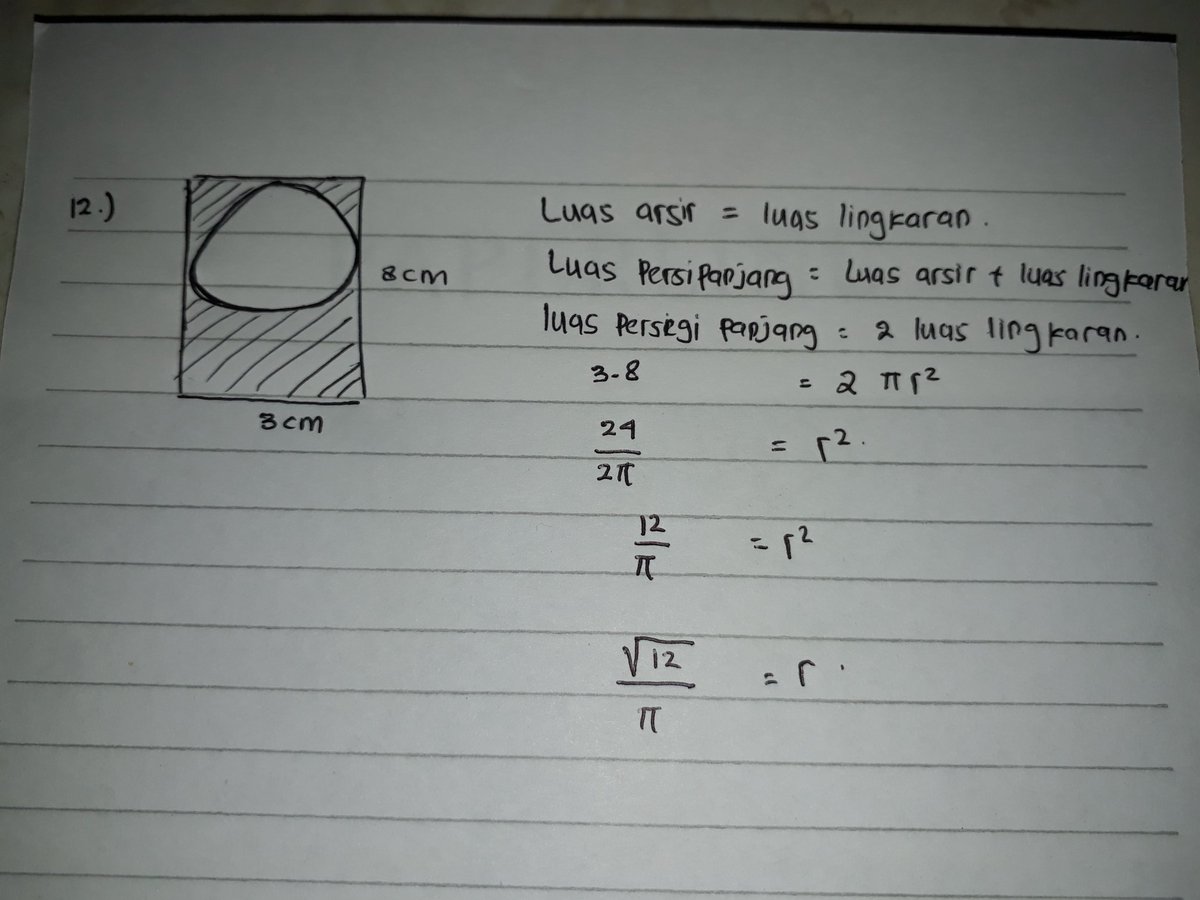 12.)
8cm
3cm
Luas arsir = luas lingkaran.
Luas Persipanjang = Luas arsir + luas lingkaran
luas Persegi panjang = 2 luas lingkaran.
3-8 = 2 πr²
24/2π = r².
12/π = r²
√12/π = r.